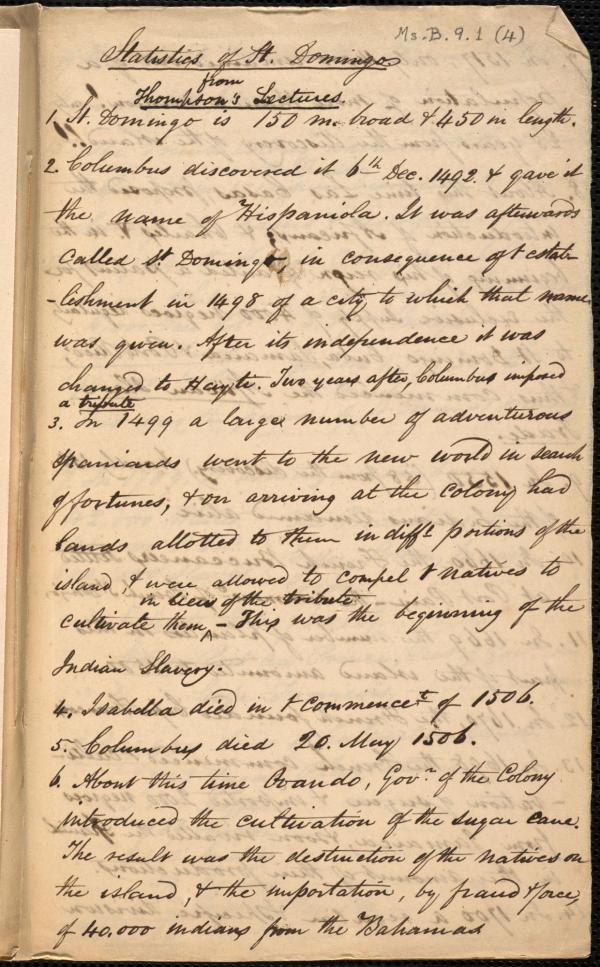 Ms. B. 9. 1 (4)
Statistics of St. Domingo
from
Thompson's Lectures.
1. St. Domingo is 150 m. broad & 450 m length.
2. Columbus discovered it 6th Dec. 1492. & gave it
the name of Hispaniola. It was afterwards
called St. Domingo, in consequence of t estab-
-lishment in 1498 of a city to which that name
was given. After its independence it was
changed to Hayti. Two years after, Columbus imposed
a tribute
3. In 1499 a large number of adventurous
Spaniards went to the new world in search
of fortunes, & on arriving at the colony had
lands allotted to them in difft portions of the
island, & were allowed to compel t natives to
in lieu of the tribute
cultivate them, ^ - This was the beginning of the
Indian Slavery.
4. Isabella died in t commencet of 1506.
5. Columbus died 20. May 1506.
6. About this time Ovando, Govr of the Colony
introduced the cultivation of the sugar cane.
The result was the destruction of the natives on
the island, & the importation, by fraud & force,
of 40.000 indians from the Bahamas